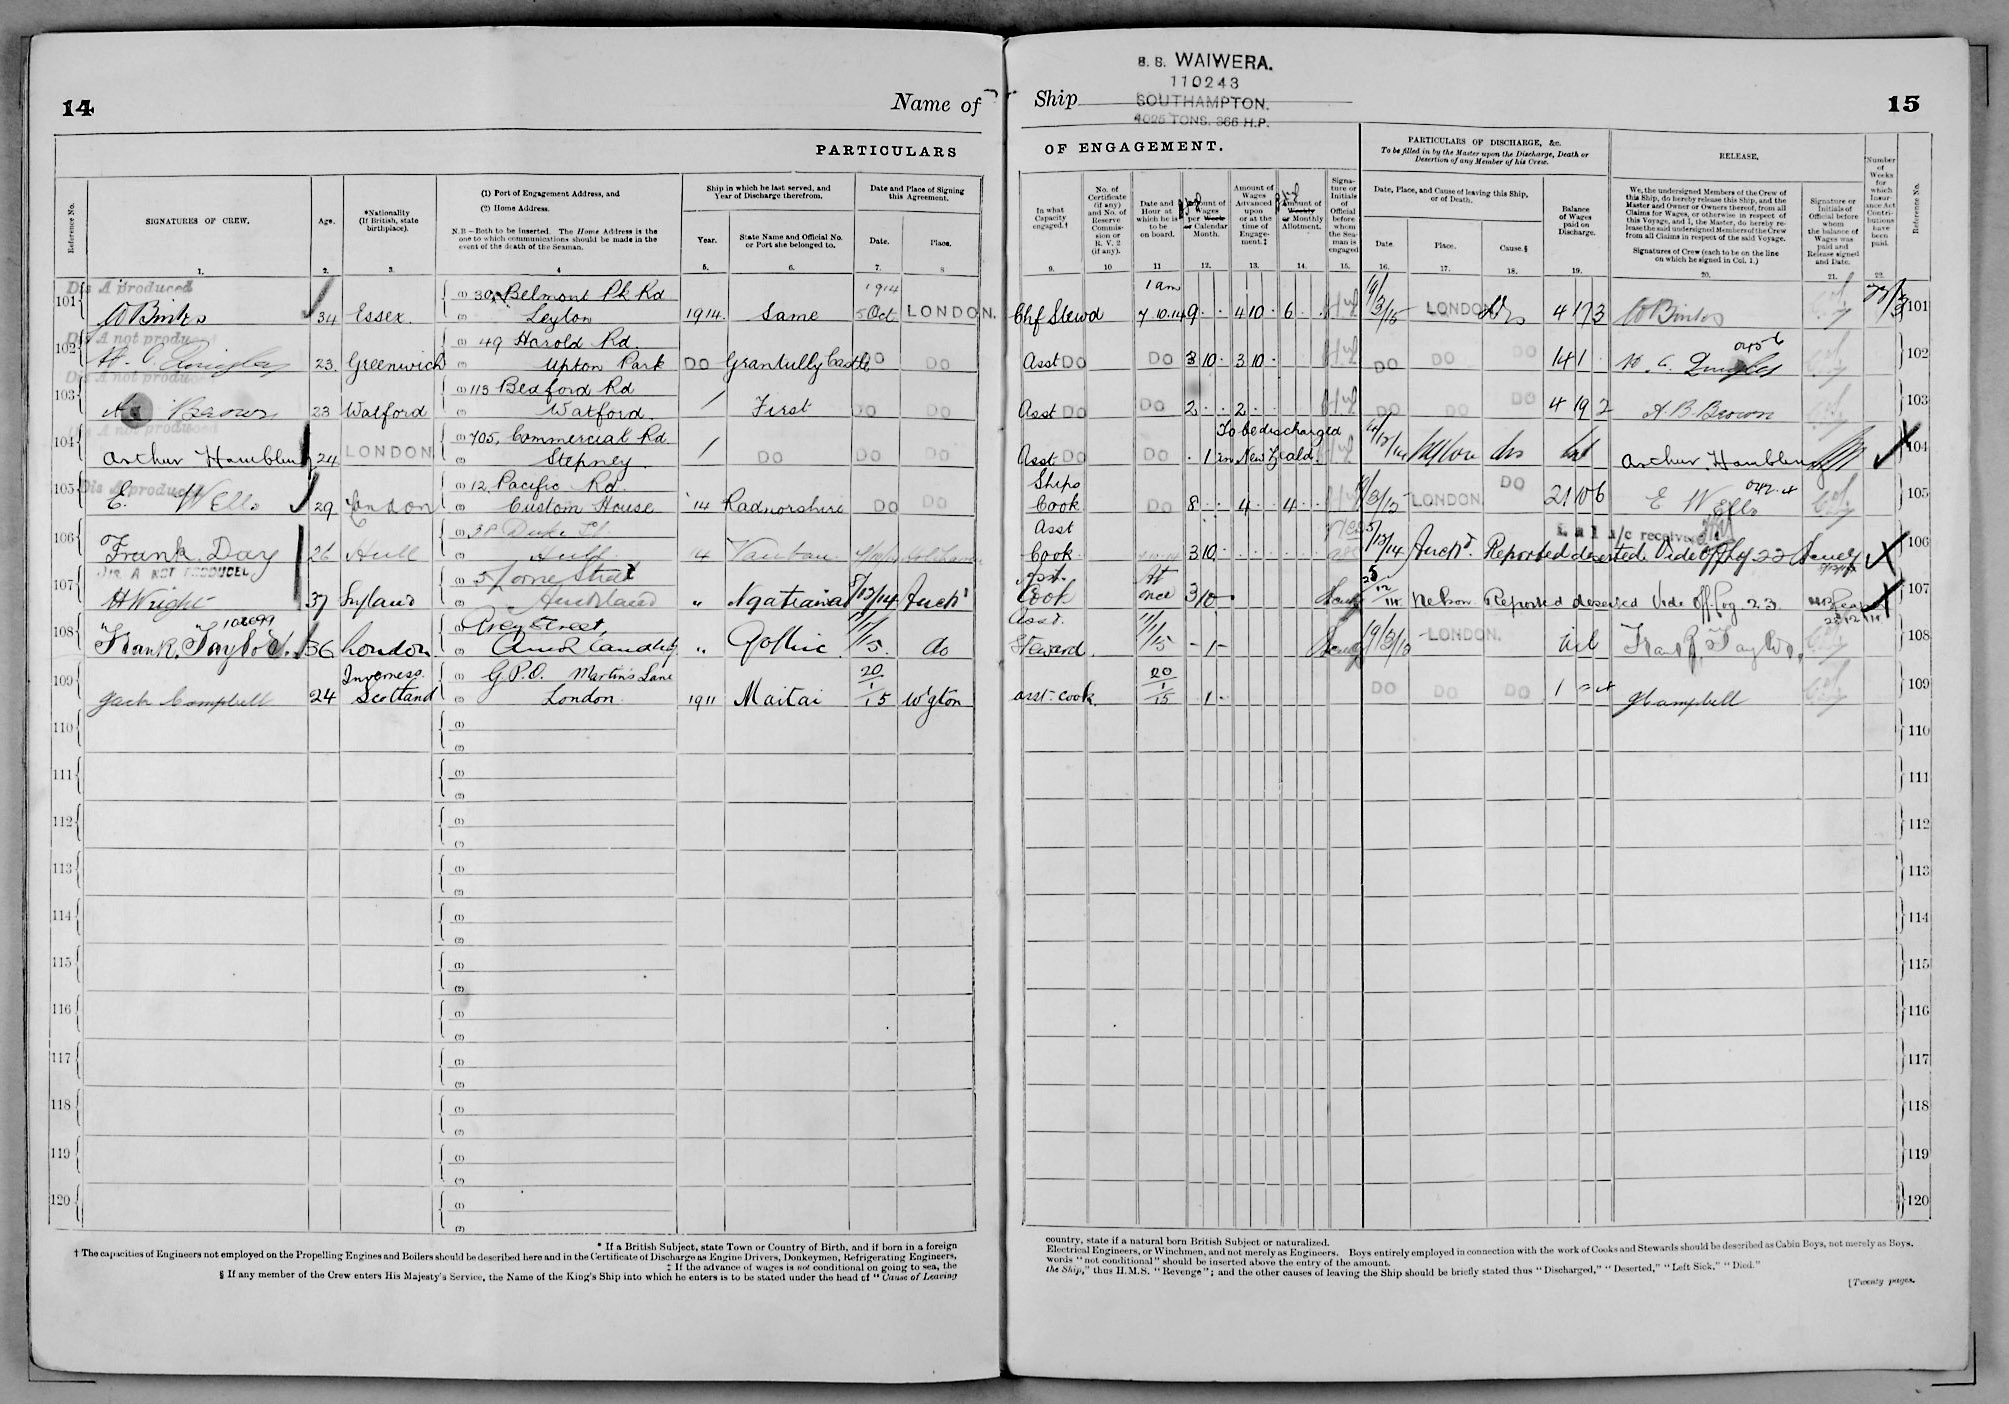 14
Name of
PARTICULARS
Reference No.
SIGNATURES OF CREW.
Age.
*Nationality
(If British, state
birthplace).
(1) Port of Engagement Address, and
(2) Home Address.
N.B.—Both to be inserted. The Home Address is the
one to which communications should be made in the
event of the death of the Seaman.
Ship in which he last served, and
Year of Discharge therefrom.
Year.
State Name and Official No.
or Port she belonged to.
Date and Place of Signing
this Agreement.
Date.
Place.
1. 2. 3. 4 5. 6. 7. 8
Dis A produced
101 W Binks 34 Essex (1) 30, Belmont Pk Rd
(2) Leyton 1914. Same 1914 5 Oct LONDON.
Dis A not produ
102 23 Greenwich (1) 49 Harold Rd.
(2) Upton Park DO Grantully Castle DO DO
Dis A not produ
103 Brown 23 Watford (1) 113 Bedford Rd
(2) Watford. / First DO DO
Dis A not produced
104 Arthur Hamblin 24 LONDON (1) 705, Commercial Rd
(2) Stepney. / DO DO DO
Dis A produced
105 E. Wells 29 London (1) 12, Pacific Rd.
(2) Custom House '14 Radnorshire DO DO
106 Frank Day 26 Hull (1) 38 Duke St
(2) Hull 14 Vauban
DIS A NOT PRODUCED
107 H Wright 37 England (1) 5 Lorne Street
(2) Auckland " Ngatiana 8/12/14 Auckd
102699
108 Frank Taylor. 36 London (1) Grey Street,
(2) " Gothic 11/1/15. do
109 Jack Campbell 24 Inverness Scotland (1) G.P.O. Martin's Lane
(2) London 1911 Maitai 20/1/15 W'gton
110 (1)
(2)
111 (1)
(2)
112 (1)
(2)
113 (1)
(2)
114 (1)
(2)
115 (1)
(2)
116 (1)
(2)
117 (1)
(2)
118 (1)
(2)
119 (1)
(2)
120 (1)
(2)
* If a British Subject, state Town or Country of Birth, and if born in a foreign
† The capacities of Engineers not employed on the Propelling Engines and Boilers should be described here and in the Certificate of Discharge as Engine Drivers, Donkeymen, Refrigerating Engineers,
‡ If the advance of wages is not conditional on going to sea, the
§ If any member of the Crew enters His Majesty's Service, the Name of the King's Ship into which he enters is to be stated under the head of "Cause of Leaving
S. S. WAIWERA.
110243
SOUTHAMPTON.
4025 TONS. 366 H.P.
Ship
15
OF ENGAGEMENT.
PARTICULARS OF DISCHARGE, &c.
To be filled in by the Master upon the Discharge, Death or
Desertion of any Member of his Crew.
RELEASE,
In what
Capacity
engaged.†
No. of
Certificate
(if any)
and No. of
Reserve
Commis-
sion or
R. V. 2
(if any).
Date and
Hour at
which he is
to be
on board.
Amount of
Wages
per Week
or Calendar
Month.
Amount of
Wages
Advanced
upon
or at the
time of
Engage-
ment.‡
Amount of
Weekly
or Monthly
Allotment.
Signa-
ture or
Initials
of
Official
before
whom
the Sea-
man is
engaged
Date, Place, and Cause of leaving this Ship,
or of Death.
Date.
Place.
Cause.§
Balance
of Wages
paid on
Discharge.
We, the undersigned Members of the Crew of
this Ship, do hereby release this Ship, and the
Master and Owner or Owners thereof, from all
Claims for Wages, or otherwise in respect of
this Voyage, and I, the Master, do hereby re-
lease the said undersigned Members of the Crew
from all Claims in respect of the said Voyage.
Signatures of Crew (each to be on the line
on which he signed in Col. 1.)
Signature or
Initials of
Official before
whom
the balance of
Wages was
paid and
Release signed
and Date.
Number
of
Weeks
for
which
Insur-
ance Act
Contri-
butions
have
been
paid.
Reference No.
9. 10 11 12. 13. 14. 15. 16. 17. 18. 19. 20. 21. 22.
Chf Stewd 1 am 7.10.14 9 4 10 6 9/3/15 LONDON Dis 4 17 3 W Binks 101
Asst DO DO 3 10 3 10 DO DO DO 14 1 102
Asst DO DO 2 2 DO DO DO 4 19 2 A. B. Brown 103
Asst DO DO 1 To be discharged in New Zeald. dis Arthur. Hamblin 104
Ships Cook DO 8 4 4 LONDON. DO 21 10 6 E Wells 105
Asst Cook 3 10 5/12/14 Auckd. Reported deserted. Vide Off Log 22 106
Asst. Cook At once 3 10 25/12/14 Nelson Reported deserted Vide Off. Log 23 107
Asst. Steward. 11/1/15 1 LONDON. nil Frank Taylor, 108
asst-cook. 20/1/15 1 DO DO DO 1 J Campbell 109
110
111
112
113
114
115
116
117
118
119
120
country, state if a natural born British Subject or naturalized.
Electrical Engineers, or Winchmen, and not merely as Engineers. Boys entirely employed in connection with the work of Cooks and Stewards should be described as Cabin Boys, not merely as Boys.
words "not conditional" should be inserted above the entry of the amount.
the Ship," thus H.M.S. "Revenge"; and the other causes of leaving the Ship should be briefly stated thus "Discharged," "Deserted," "Left Sick," "Died."
[Twenty pages.